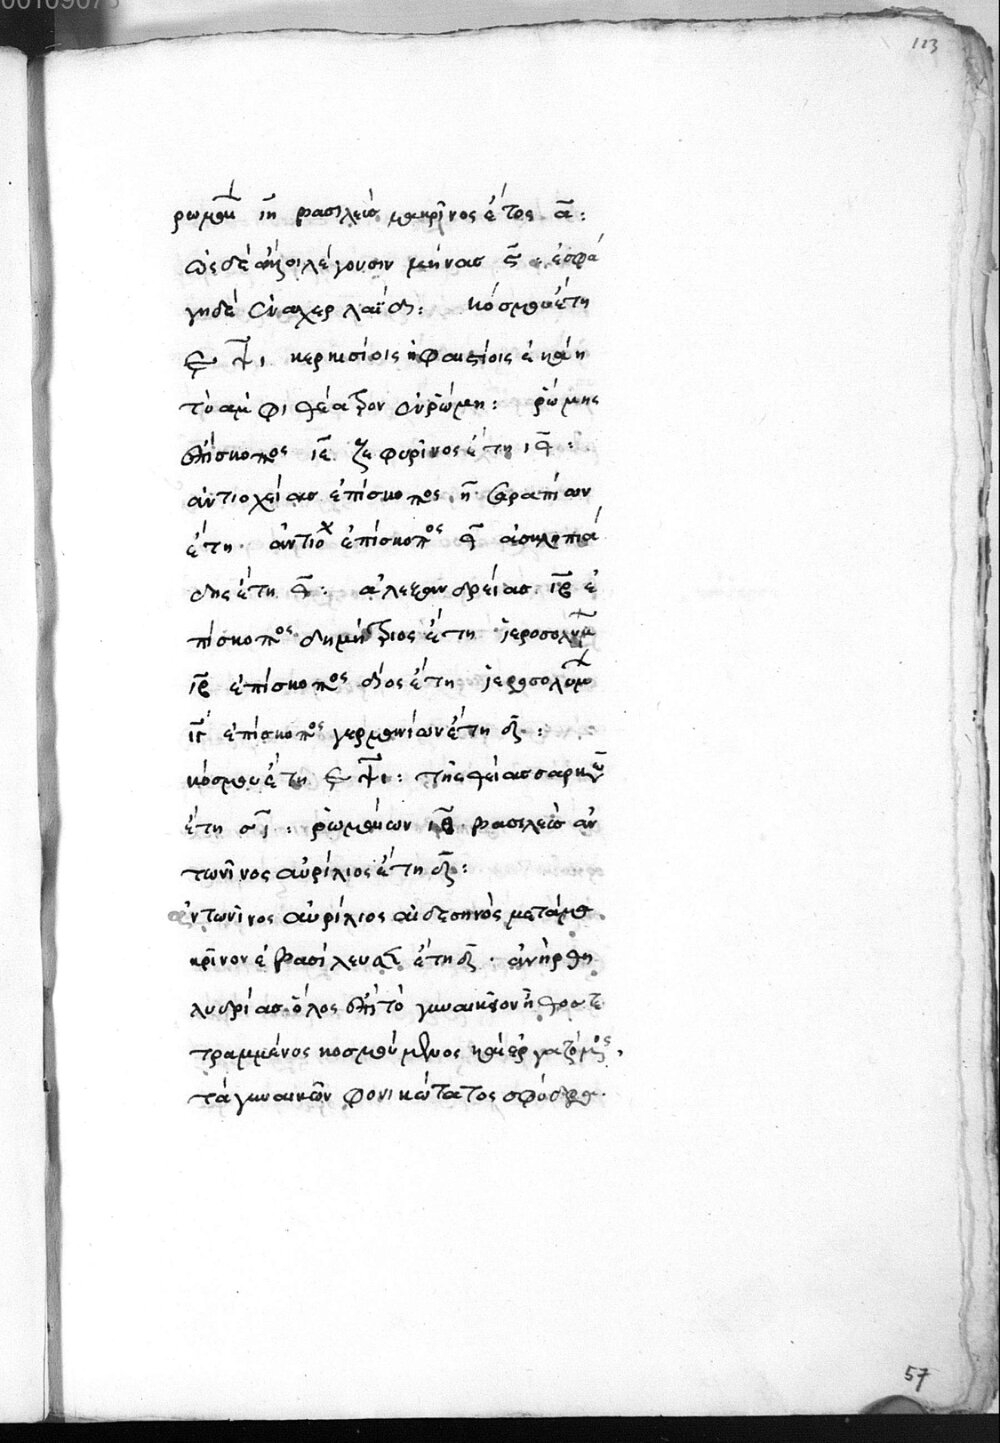 00109073
113
ρωμαι ιη βασιλεὺς μακρῖνος ἔτος α:
ὡς δὲ ἄλλοι λέγουσιν μῆνας ϛ ἐσφά
γη δὲ ἐν αρχελαΐδι: κόσμου ἔτη
εψι κερκισίοις ἡφαιστίοις ἐκάη
τὸ ἀμφιθέατρον ἐν ῥώμη: ῥώμης
ἐπίσκοπος ιε ζεφυρῖνος ἔτη ιθ:
ἀντιοχείας ἐπίσκοπος η σεραπίων
ἔτη ἀντιοχ ἐπίσκοπος θ ἀσκληπιά
δης ἔτη θ: ἀλεξανδρείας ιβ ἐ
πίσκοπος δημήτριος ἔτη ἱεροσολύμ
ιβ ἐπίσκοπος δίος ἔτη ἱεροσολύμ
ιγ ἐπίσκοπος γερμανίων ἔτη δ:
κόσμου ἔτη εψι: τῆς θείας σαρκώ
ἔτη σι: ῥωμαίων ιθ βασιλεὺς ἀν
τωνῖνος αὐρίλιος ἔτη δ:
ἀντωνῖνος αὐρίλιος αἰδεσηνὸς μετὰ μα
κρῖνον ἐβασίλευσε ἔτη δ. ἀνηρέθη
λυδρίας ὅλος ἐπὶ τὸ γυναικεῖον ἦθος τε
τραμμένος κοσμούμενος καὶ ἐργαζόμενος,
τὰ γυναικῶν φονικώτατος σφόδρα.
57